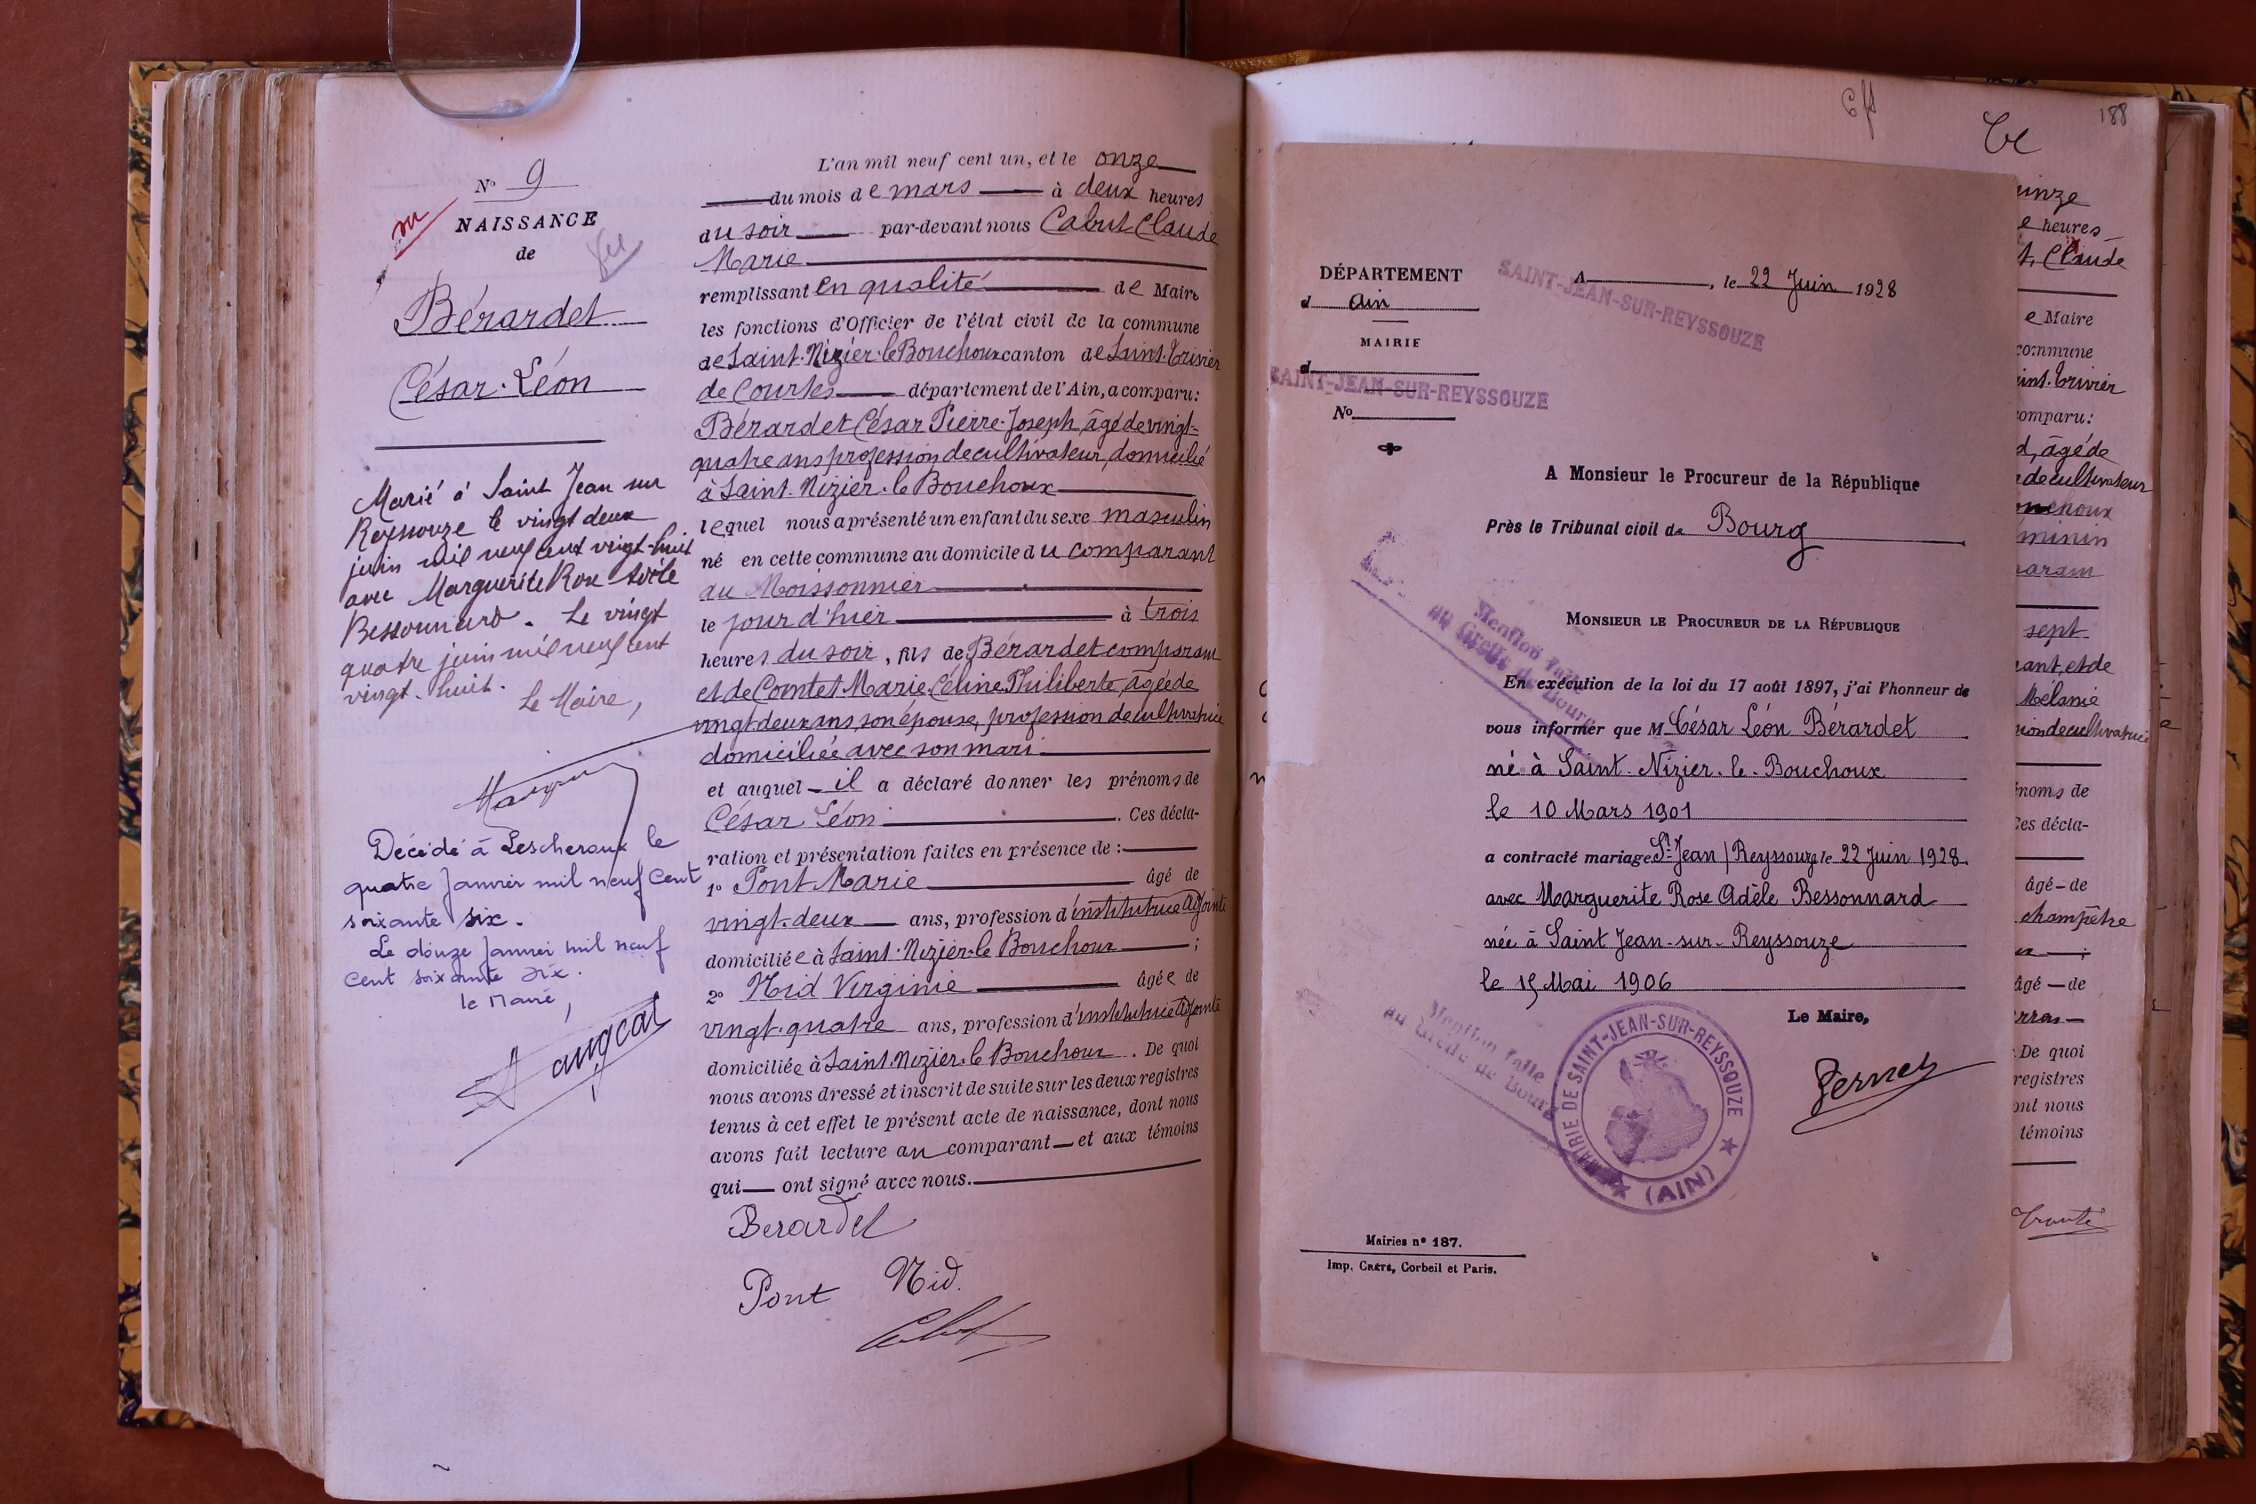 N° 9
NAISSANCE
de
Bérardet
César Léon
Marié à Saint Jean sur
Reyssouze le vingt deux
juin mil neuf cent vingt-huit
avec Marguerite Rose Adèle
Bessonnard. Le vingt
quatre juin mil neuf cent
vingt-huit.
Le Maire,
Décédé à Lescheroux le
quatre Janvier mil neuf cent
soixante six.
Le douze Janvier mil neuf
cent soixante six.
le Maire,
L'an mil neuf cent un, et le onze
du mois de mars à deux heures
du soir par-devant nous Cabut Claude
Marie
remplissant en qualité de Maire
les fonctions d'Officier de l'état civil de la commune
de Saint-Nizier-le-Bouchoux canton de Saint-Trivier
de Courtes département de l'Ain, a comparu:
Bérardet César Pierre-Joseph, âgé de vingt-
quatre ans profession de cultivateur, domicilié
à Saint-Nizier-le Bouchoux
lequel nous a présenté un enfant du sexe masculin
né en cette commune au domicile du comparant
au Moissonnier
le jour d'hier à trois
heures du soir, fils de Bérardet comparant
et de Comtet Marie Céline Philiberte, âgée de
vingt deux ans, son épouse, profession de cultivatrice
domiciliée avec son mari
et auquel il a déclaré donner les prénoms de
César Léon. Ces décla-
ration et présentation faites en présence de:
1° Pont Marie âgé de
vingt-deux ans, profession d'institutrice adjointe
domiciliée à Saint-Nizier-le Bouchoux;
2° Nid Virginie âgée de
vingt-quatre ans, profession d'institutrice adjointe
domiciliée à Saint-Nizier-le Bouchoux. De quoi
nous avons dressé et inscrit de suite sur les deux registres
tenus à cet effet le présent acte de naissance, dont nous
avons fait lecture au comparant et aux témoins
qui ont signé avec nous.
Berardet
Pont Nid.
188
DÉPARTEMENT
d ain
MAIRIE
d
SAINT-JEAN-SUR-REYSSOUZE
N°
A SAINT-JEAN-SUR-REYSSOUZE, le 22 Juin 1928
A Monsieur le Procureur de la République
Près le Tribunal civil de Bourg
MONSIEUR LE PROCUREUR DE LA RÉPUBLIQUE
Mention faite
au Greffe de Bourg
En exécution de la loi du 17 août 1897, j'ai l'honneur de
vous informer que M César Léon Bérardet
né à Saint-Nizier-le-Bouchoux
le 10 Mars 1901
a contracté mariage St Jean / Reyssouze le 22 Juin 1928.
avec Marguerite Rose Adèle Bessonnard
née à Saint Jean-sur-Reyssouze
le 15 Mai 1906
Le Maire,
Mention faite
au Greffe de Bourg
MAIRIE DE SAINT-JEAN-SUR-REYSSOUZE
(AIN)
Mairies n° 187.
Imp. CRÉTÉ, Corbeil et Paris.
heures
Claude
e Maire
commune
comparu:
âgé de
de cultivateur
sept
Mélanie
Ces décla-
âgé de
champêtre
âgé de
De quoi
registres
dont nous
témoins